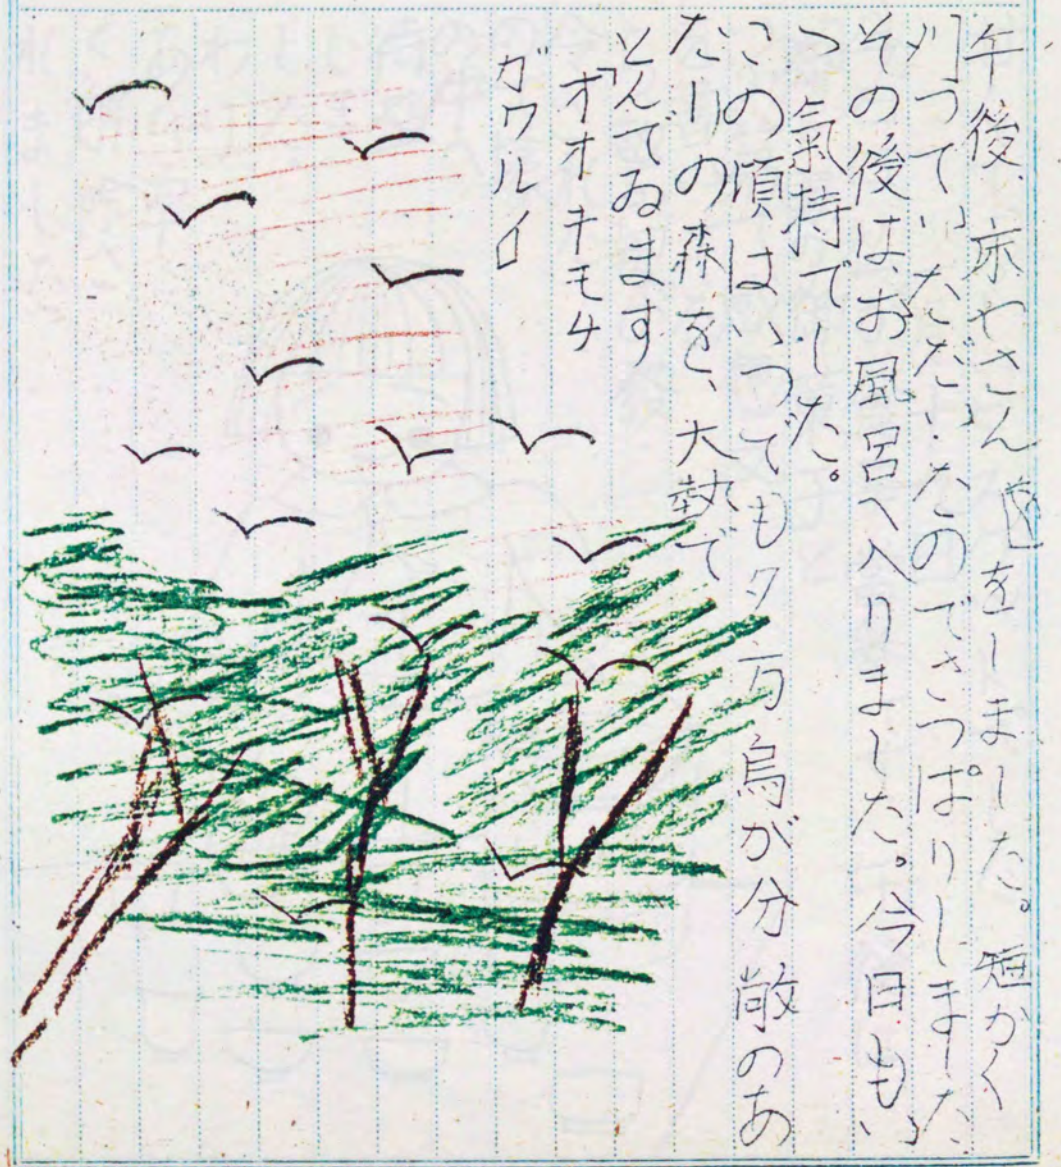 午後、床やさんをしました。短かく
刈つていただいたのでさつぱりしました
その後は、お風呂へ入りました。今日もい
つ氣持でした。
この頃はいつでも夕方鳥が分敞のあ
たりの森を、大勢で
とんでゐます
「オオキモチ
ガワルイ